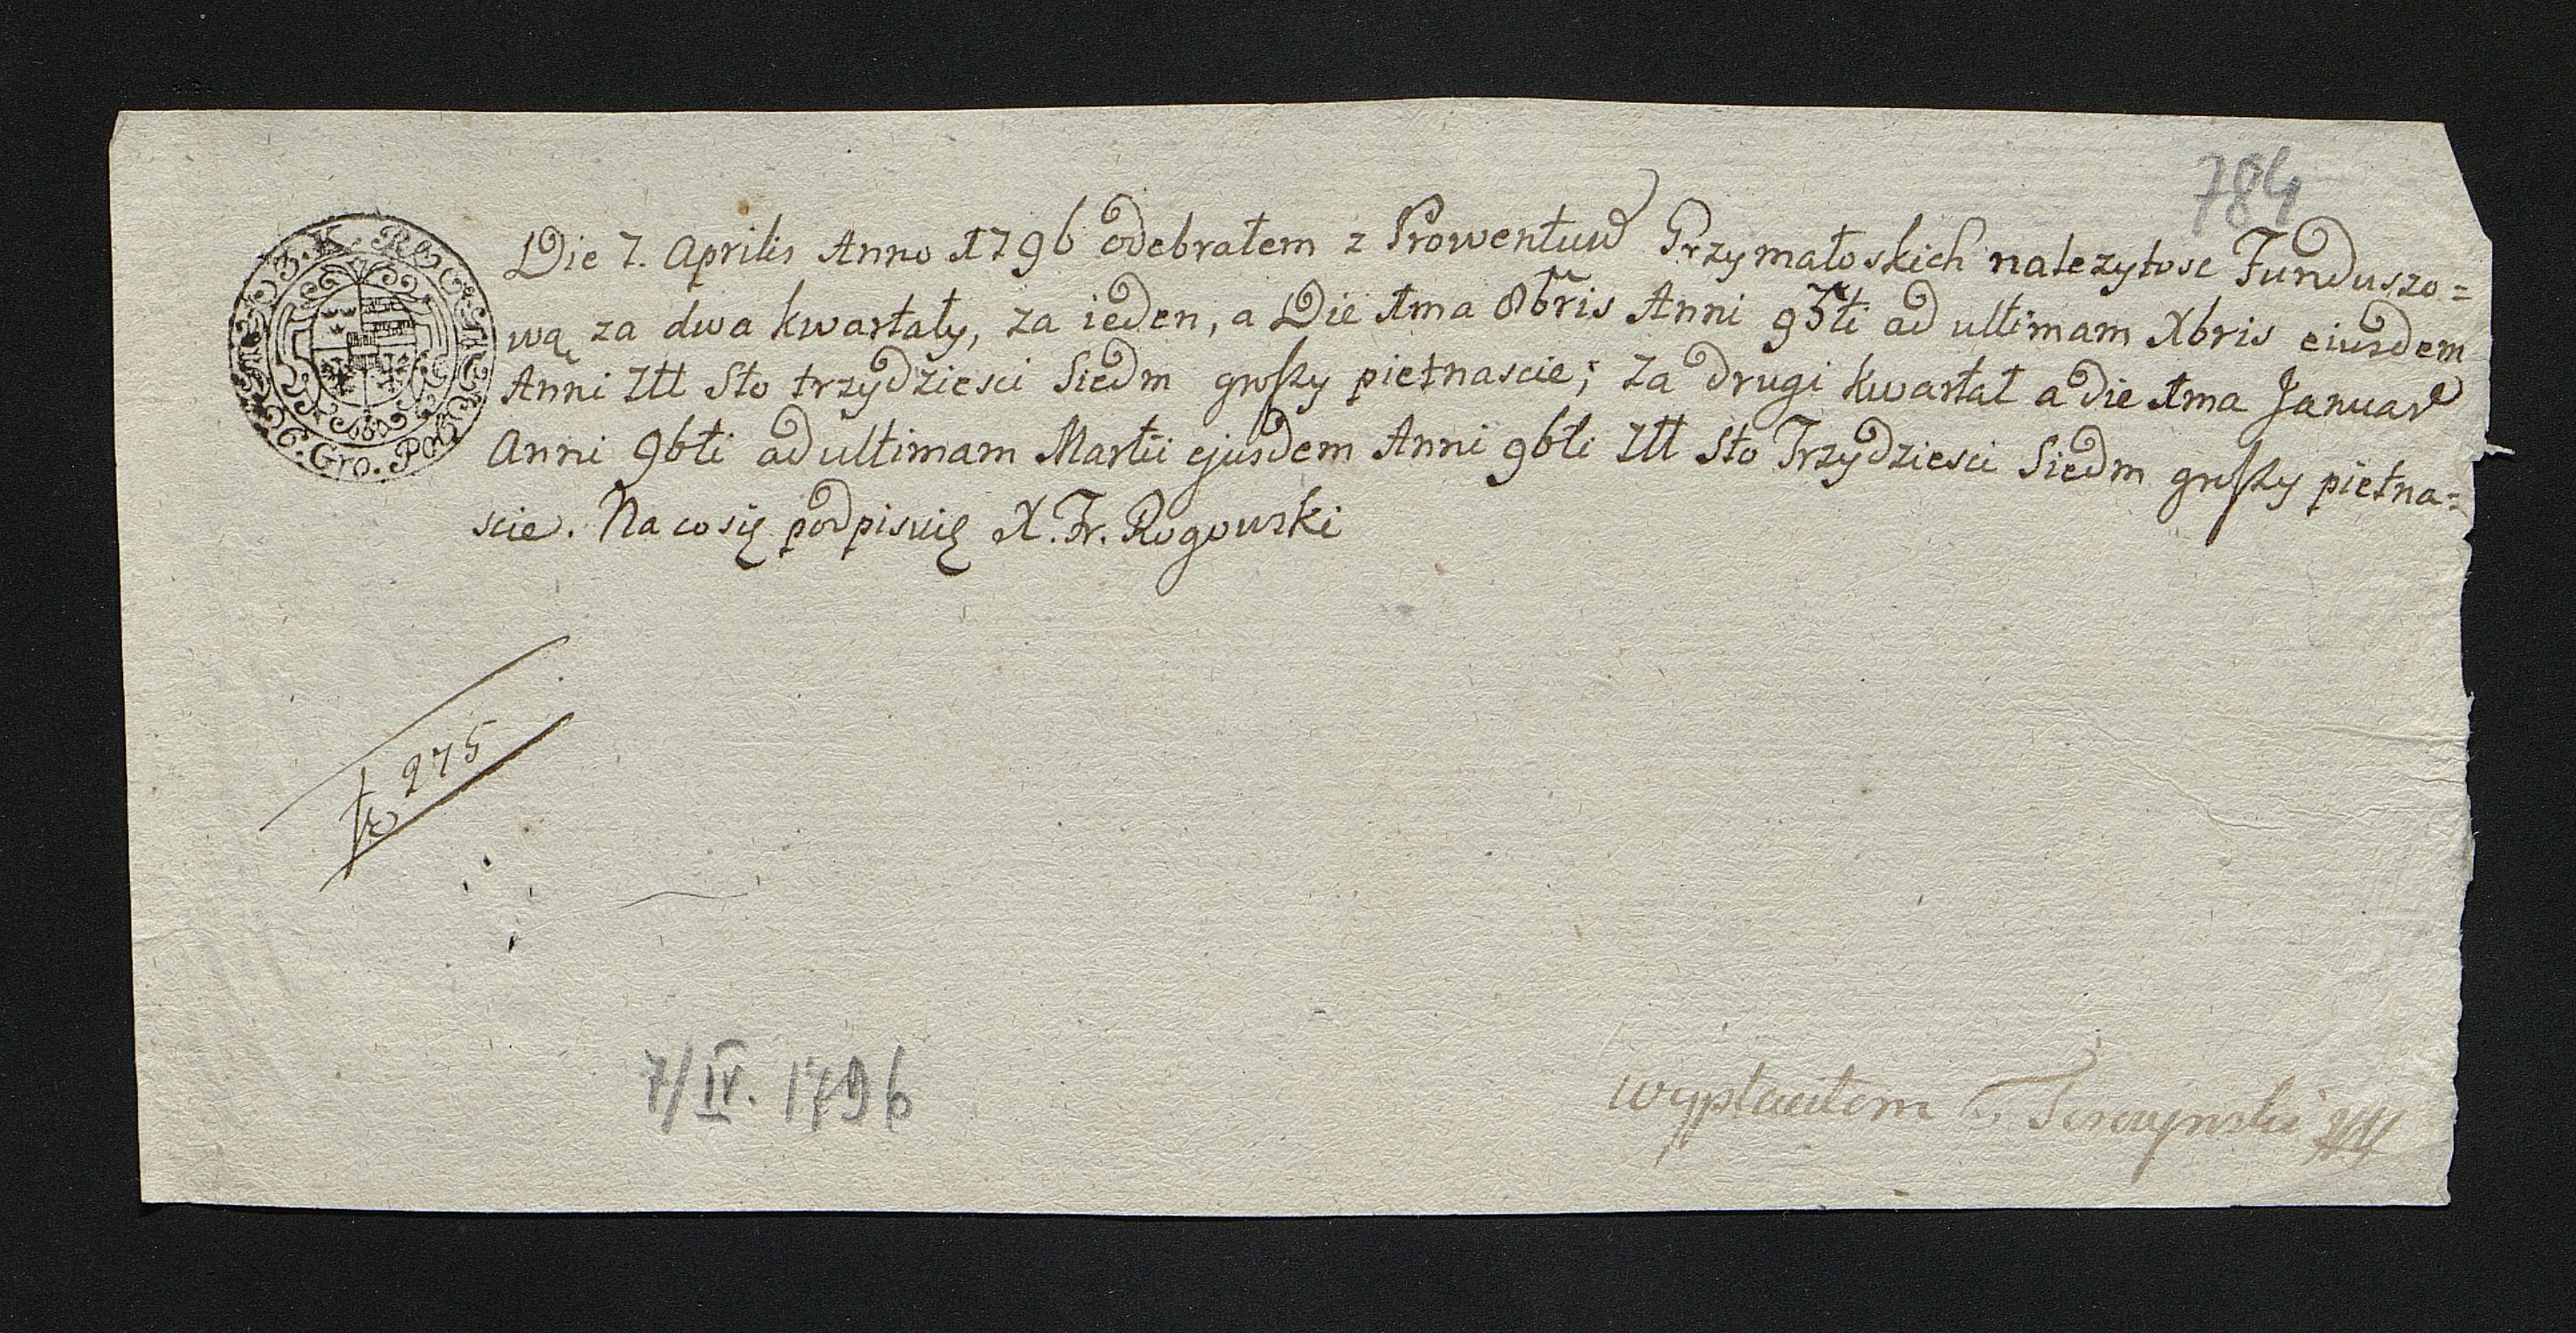 784
Die 7. Aprilis Anno 1796 odebrałem z Prowentuw Przymałoskich nalezytosc Funduszo=
wą za dwa kwartały, za ieden, a Die 1ma 8bris Anni 95ti ad ultimam Xbris eiusdem
Anni Złł Sto trzydziesci Siedm groszy piętnascie; za drugi kwartał a die 1ma Januar
Anni 96ti ad ultimam Martii ejusdem Anni 96ti Złł Sto Trzydziesci Siedm groszy piętna=
scie. Na co się podpisuię X. Fr. Rogowski
275
7/IV. 1796
wypłaciłem